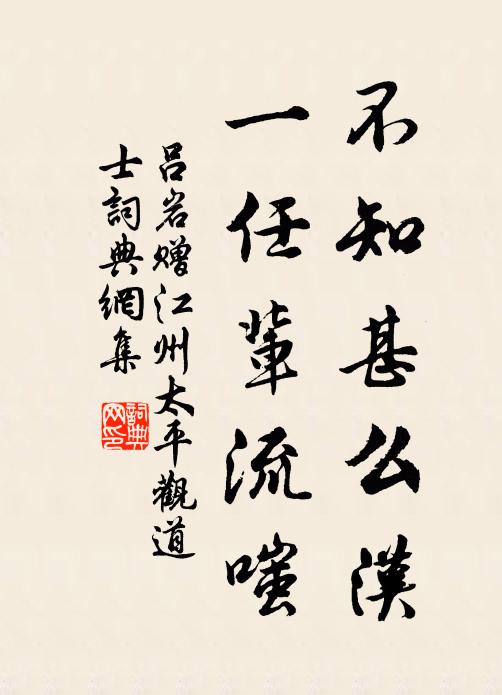 不知甚么漢
一任輩流嗤
吕岩赠江州太平觀道
士詞典網集
詞典网印